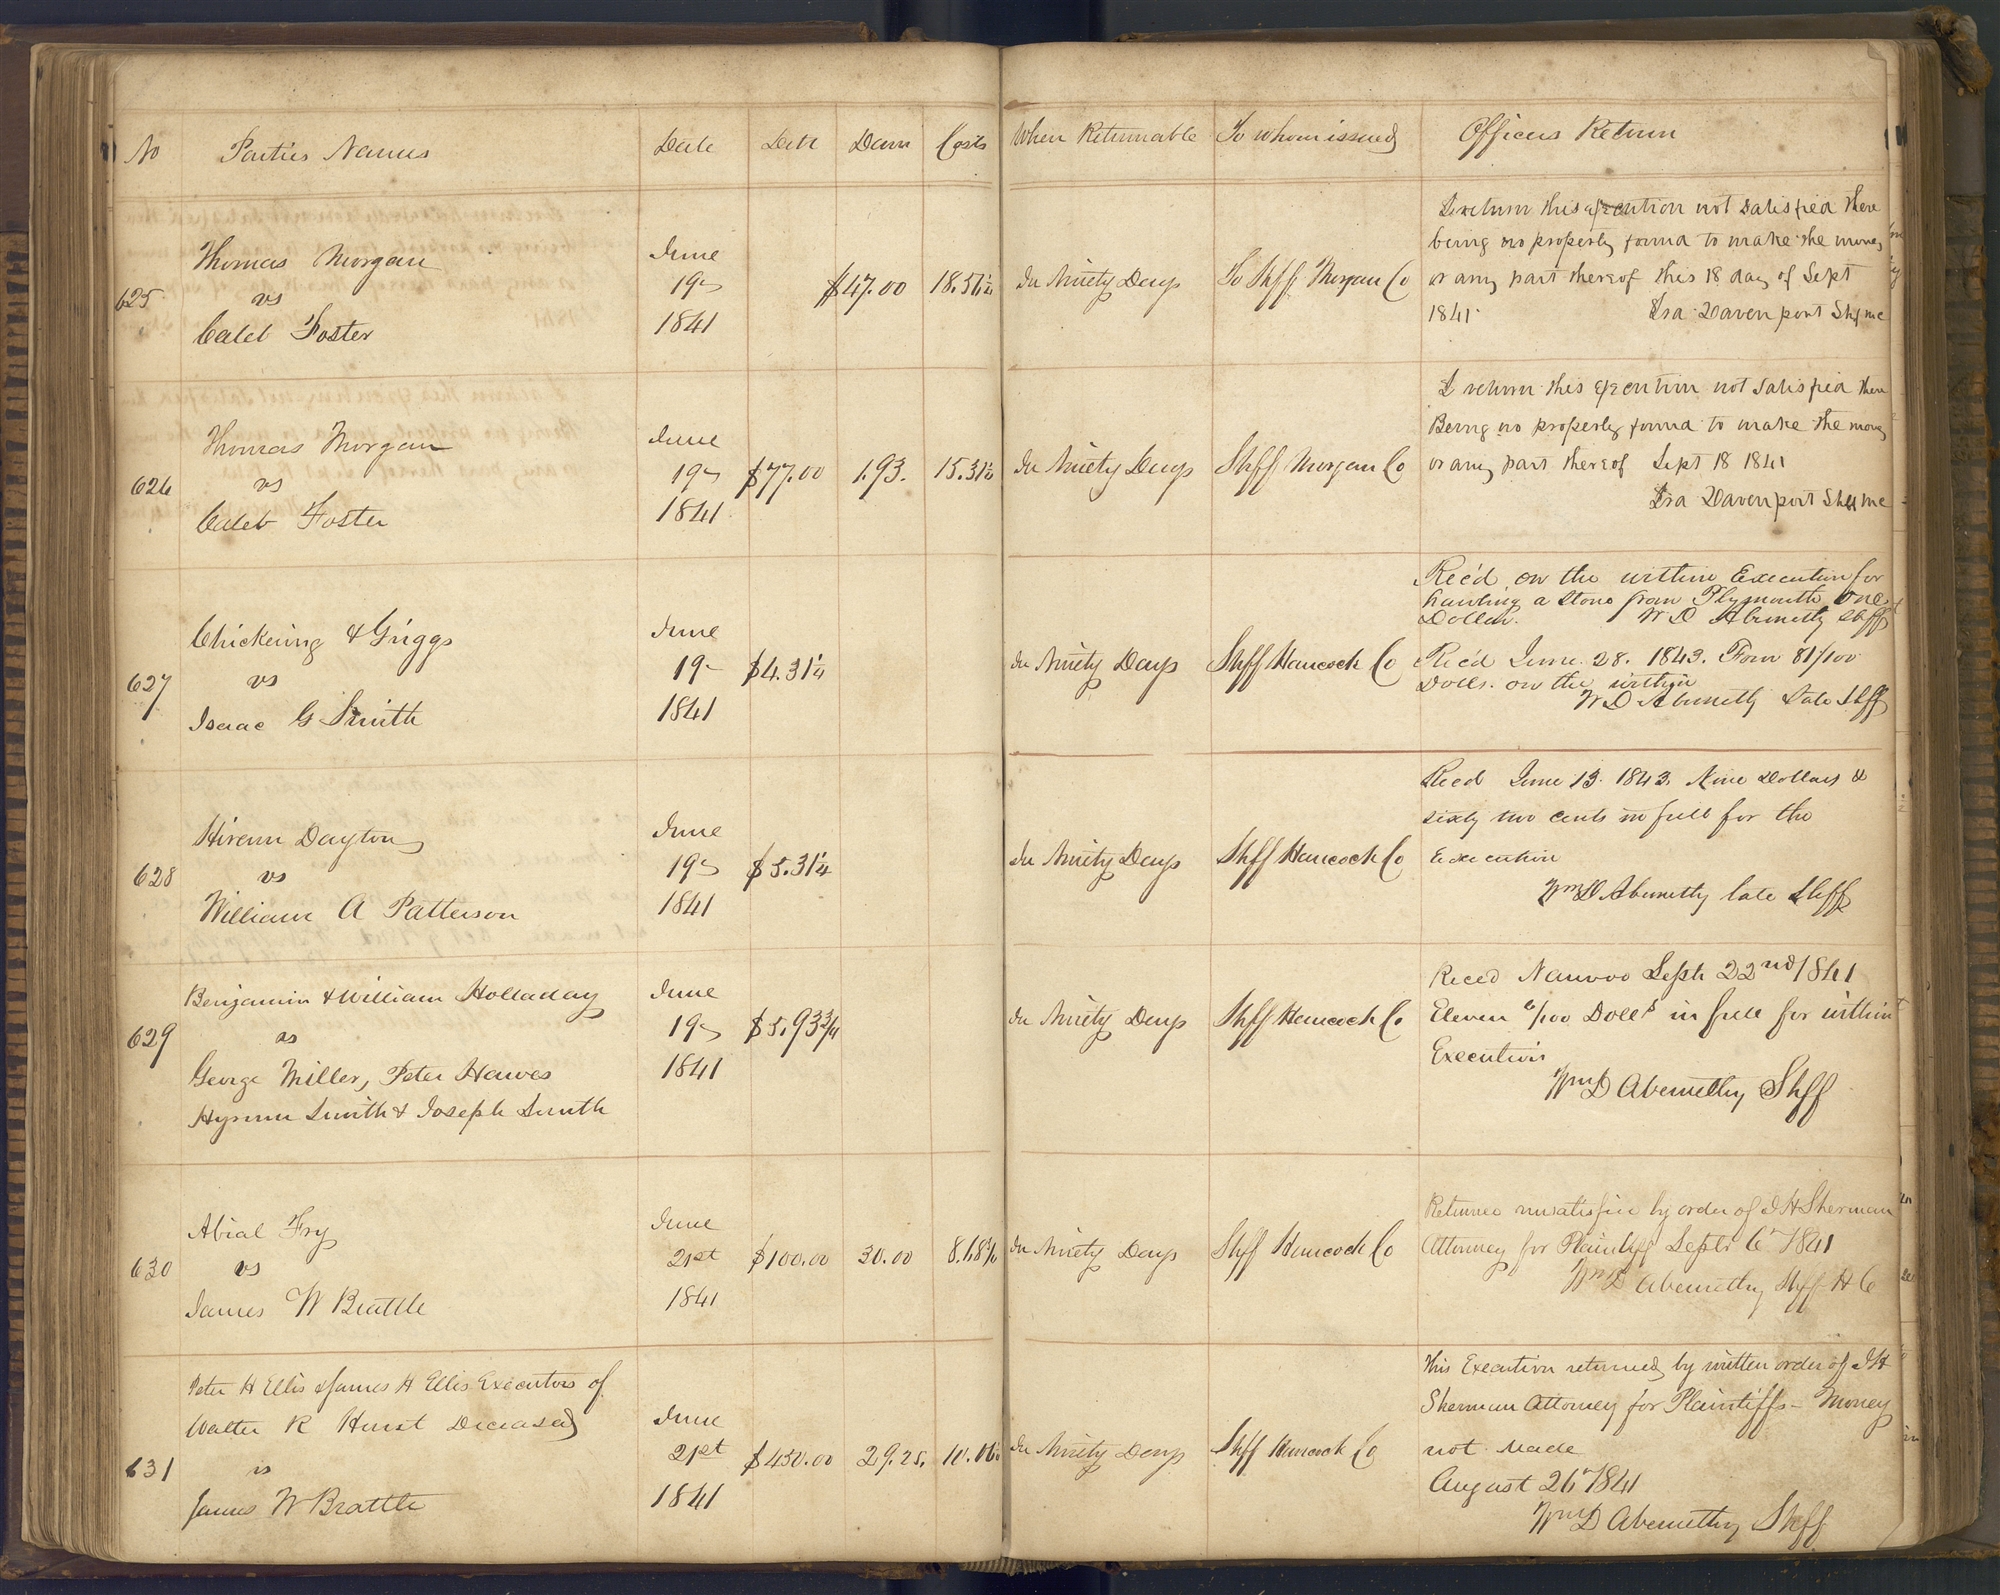 No
Parties Names
Date
Debt
Dam
Costs
When Returnable
To whom issued
Officers Return
625
Thomas Morgan
vs
Caleb Foster
June
19
1841
$47.00
18.51¼
In Ninety Days
To Shff Morgan Co
I return this execution not satisfied there
being no property found to make the money
or any part thereof this 18 day of Sept
1841. Ira Davenport Shff mc
626
Thomas Morgan
vs
Caleb Foster
June
19
1841
$77.00
1.93.
15.31¼
In Ninety Days
Shff Morgan Co
I return this execution not satisfied there
Being no property found to make the money
or any part thereof Sept 18 1841
Ira Davenport Shff mc
627
Chickering & Griggs
vs
Isaac G Smith
June
19
1841
$4.31¼
In Ninety Days
Shff Hancock Co
Rec'd on the within Execution for
hauling a stone from Plymouth one
Dollar. W. D Abernethy Shff
Rec'd June 28. 1843. Four 81/100
Dolls. on the within
W D Abernethy Late Shff
628
Hiram Dayton
vs
William A Patterson
June
19
1841
$5.31¼
In Ninety Days
Shff Hancock Co
Recd June 13. 1843. Nine Dollars &
sixty two cents in full for the
Execution
Wm D Abernethy late Shff
629
Benjamin & William Holladay
vs
George Miller, Peter Hawes
Hyrum Smith & Joseph Smith
June
19
1841
$5.93¾
In Ninety Days
Shff Hancock Co
Reced Nauvoo Sept 22nd 1841
Eleven 6/100 Dolls in full for within
Execution
Wm D Abernethy Shff
630
Abial Fry
vs
James W Brattle
June
21st
1841
$100.00
30.00
8.18¾
In Ninety Days
Shff Hancock Co
Returned unsatisfied by order of J H Sherman
Attorney for Plaintiff Septr 6th 1841
Wm D Abernethy Shff H C
631
Peter H Ellis & James H Ellis Executors of
Walter R Hurst Deceased
vs
James W Brattle
June
21st
1841
$450.00
29.25.
10.06
In Ninety Days
Shff Hancock Co
This Execution returned by written order of J H
Sherman Attorney for Plaintiffs - Money
not made
August 26th 1841
Wm D Abernethy Shff